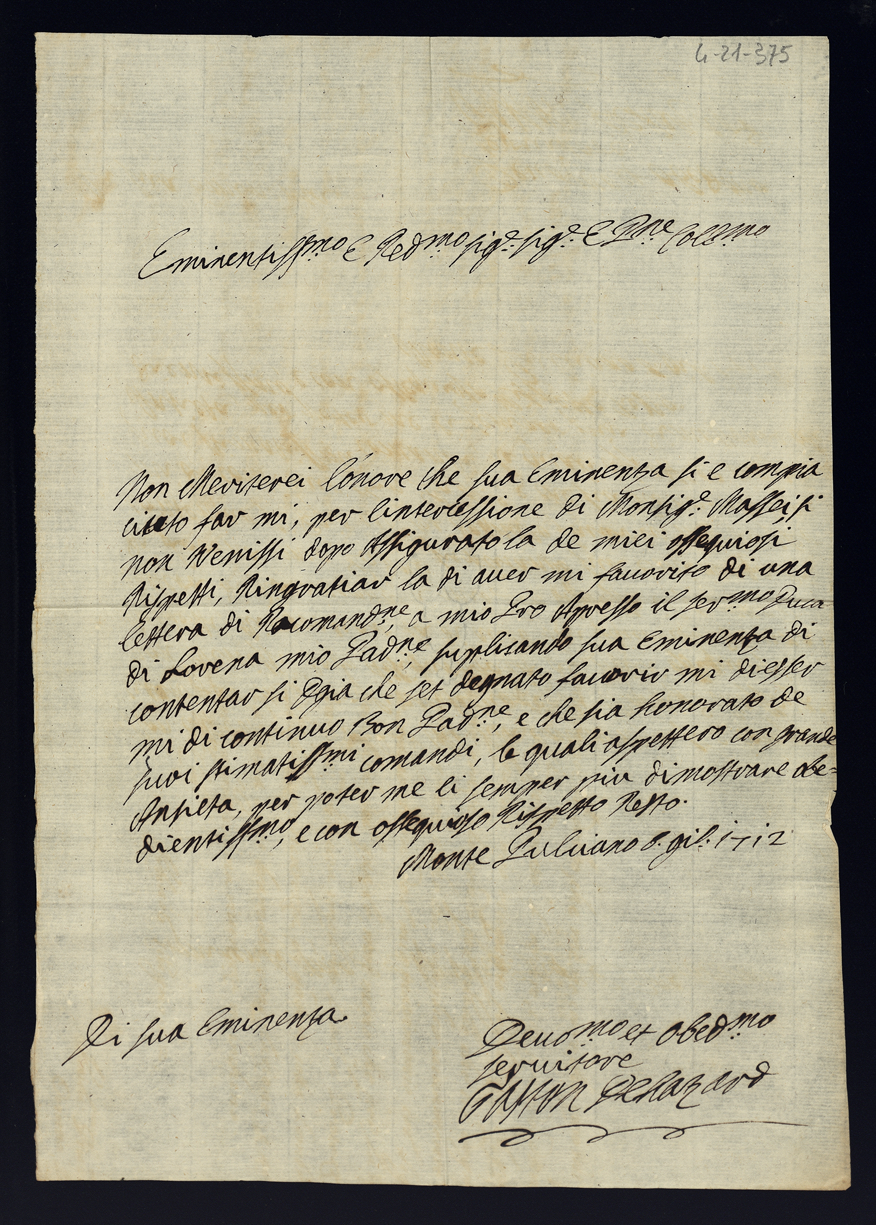 4-21-375
Eminentissmo E Redmo sigre: sigre: E Pne Colemo
Non Meriterei lónore che sua Eminenza si e compia
ciuto far mi, per l'intercessione di Monsigre: Massei, si
non Venissi dopo Assigurato la de miei ossequiosi
Rispetti, Ringratiar la di auer mi fauorito di una
lettera di Racomandne, a mio Pro Apresso il sermo Duca
di Lorena mio Padne, suplicando sua Eminenza di
contentar si Dgia che set degnato fauorir mi diesser
mi di continuo Bon Padne, e che sia honorato de
suoi stimatissmi comandi, le quali aspettero con grande
Ansieta, per poter me li semper piu dimostrare obe=
dientissmo, e con ossequioso Rispetto Resto.
Monte Pulciano 8. gil: 1712
Di sua Eminenza.
Deuomo et obedmo
seruitore